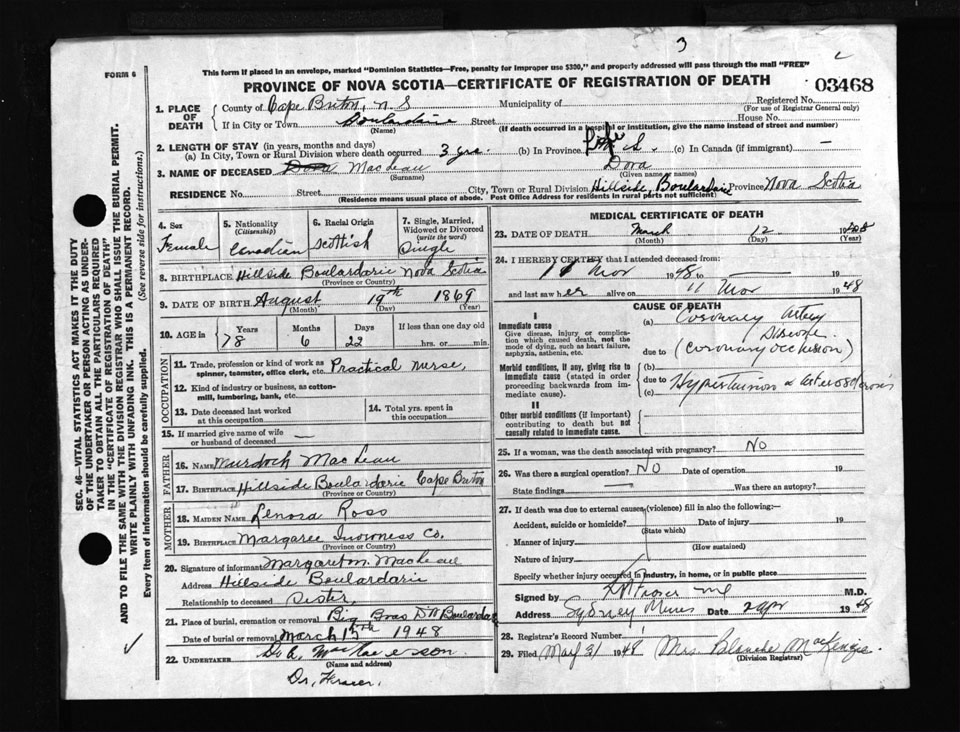 3
FORM 6
This form if placed in an envelope, marked "Dominion Statistics—Free, penalty for improper use $300," and properly addressed will pass through the mail "FREE"
PROVINCE OF NOVA SCOTIA—CERTIFICATE OF REGISTRATION OF DEATH
03468
1. PLACE OF DEATH
County of Cape Breton, N.S Municipality of Registered No.
(For use of Registrar General only)
If in City or Town Boulardarie Street House No.
(Name) (If death occurred in a hospital or institution, give the name instead of street and number)
2. LENGTH OF STAY (in years, months and days)
(a) In City, Town or Rural Division where death occurred 3 yrs. (b) In Province (c) In Canada (if immigrant) —
3. NAME OF DECEASED Dora MacLean Dora
(Surname) (Given name or names)
RESIDENCE No. Street City, Town or Rural Division Hillside, Boulardarie Province Nova Scotia
(Residence means usual place of abode. Post Office Address for residents in rural parts not sufficient)
SEC. 46—VITAL STATISTICS ACT MAKES IT THE DUTY
OF THE UNDERTAKER OR PERSON ACTING AS UNDER-
TAKER TO OBTAIN ALL THE PARTICULARS REQUIRED
IN THE "CERTIFICATE OF REGISTRATION OF DEATH"
AND TO FILE THE SAME WITH THE DIVISION REGISTRAR WHO SHALL ISSUE THE BURIAL PERMIT.
WRITE PLAINLY WITH UNFADING INK. THIS IS A PERMANENT RECORD.
Every item of information should be carefully supplied. (See reverse side for instructions.)
4. Sex
Female
5. Nationality
(Citizenship)
Canadian
6. Racial Origin
Scottish
7. Single, Married,
Widowed or Divorced
(write the word)
Single
8. BIRTHPLACE Hillside Boulardarie Nova Scotia
(Province or Country)
9. DATE OF BIRTH August 19th 1869
(Month) (Day) (Year)
10. AGE in Years Months Days If less than one day
78 6 22 hrs. or min.
OCCUPATION
11. Trade, profession or kind of work as Practical nurse
spinner, teamster, office clerk, etc.
12. Kind of industry or business, as cotton-
mill, lumbering, bank, etc.
13. Date deceased last worked
at this occupation
14. Total yrs. spent in
this occupation
15. If married give name of wife
or husband of deceased —
FATHER
16. NAME Murdoch MacLean
17. BIRTHPLACE Hillside Boulardarie Cape Breton
(Province or Country)
MOTHER
18. MAIDEN NAME Lenora Ross
19. BIRTHPLACE Margaree Inverness Co.
(Province or Country)
20. Signature of informant MacLean
Address Hillside Boulardarie
Relationship to deceased Sister
21. Place of burial, cremation or removal Big Bras D'Or Boulardarie
Date of burial or removal March 15th 1948
22. UNDERTAKER
(Name and address)
Dr. Fraser.
MEDICAL CERTIFICATE OF DEATH
23. DATE OF DEATH March 12 1948
(Month) (Day) (Year)
24. I HEREBY CERTIFY that I attended deceased from:
11 Mar 1948 to — 19
and last saw her alive on 11 Mar 1948
CAUSE OF DEATH
I
Immediate cause
Give disease, injury or complication which caused death, not the mode of dying, such as heart failure, asphyxia, asthenia, etc.
(a) Coronary Artery Disease
due to (Coronary occlusion)
Morbid conditions, if any, giving rise to immediate cause (stated in order proceeding backwards from immediate cause).
(b)
due to Hypertension & arteriosclerosis
(c)
II
Other morbid conditions (if important) contributing to death but not causally related to immediate cause.
25. If a woman, was the death associated with pregnancy? NO
26. Was there a surgical operation? NO Date of operation 19
State findings — Was there an autopsy?
27. If death was due to external causes (violence) fill in also the following:—
Accident, suicide or homicide? Date of injury 19
(State which)
Manner of injury
(How sustained)
Nature of injury
Specify whether injury occurred in industry, in home, or in public place
Signed by Fraser MD M.D.
Address Sydney Mines Date 2 Apr 1948
28. Registrar's Record Number 1
29. Filed May 31 1948 Mrs. Blanche MacKenzie
(Division Registrar)